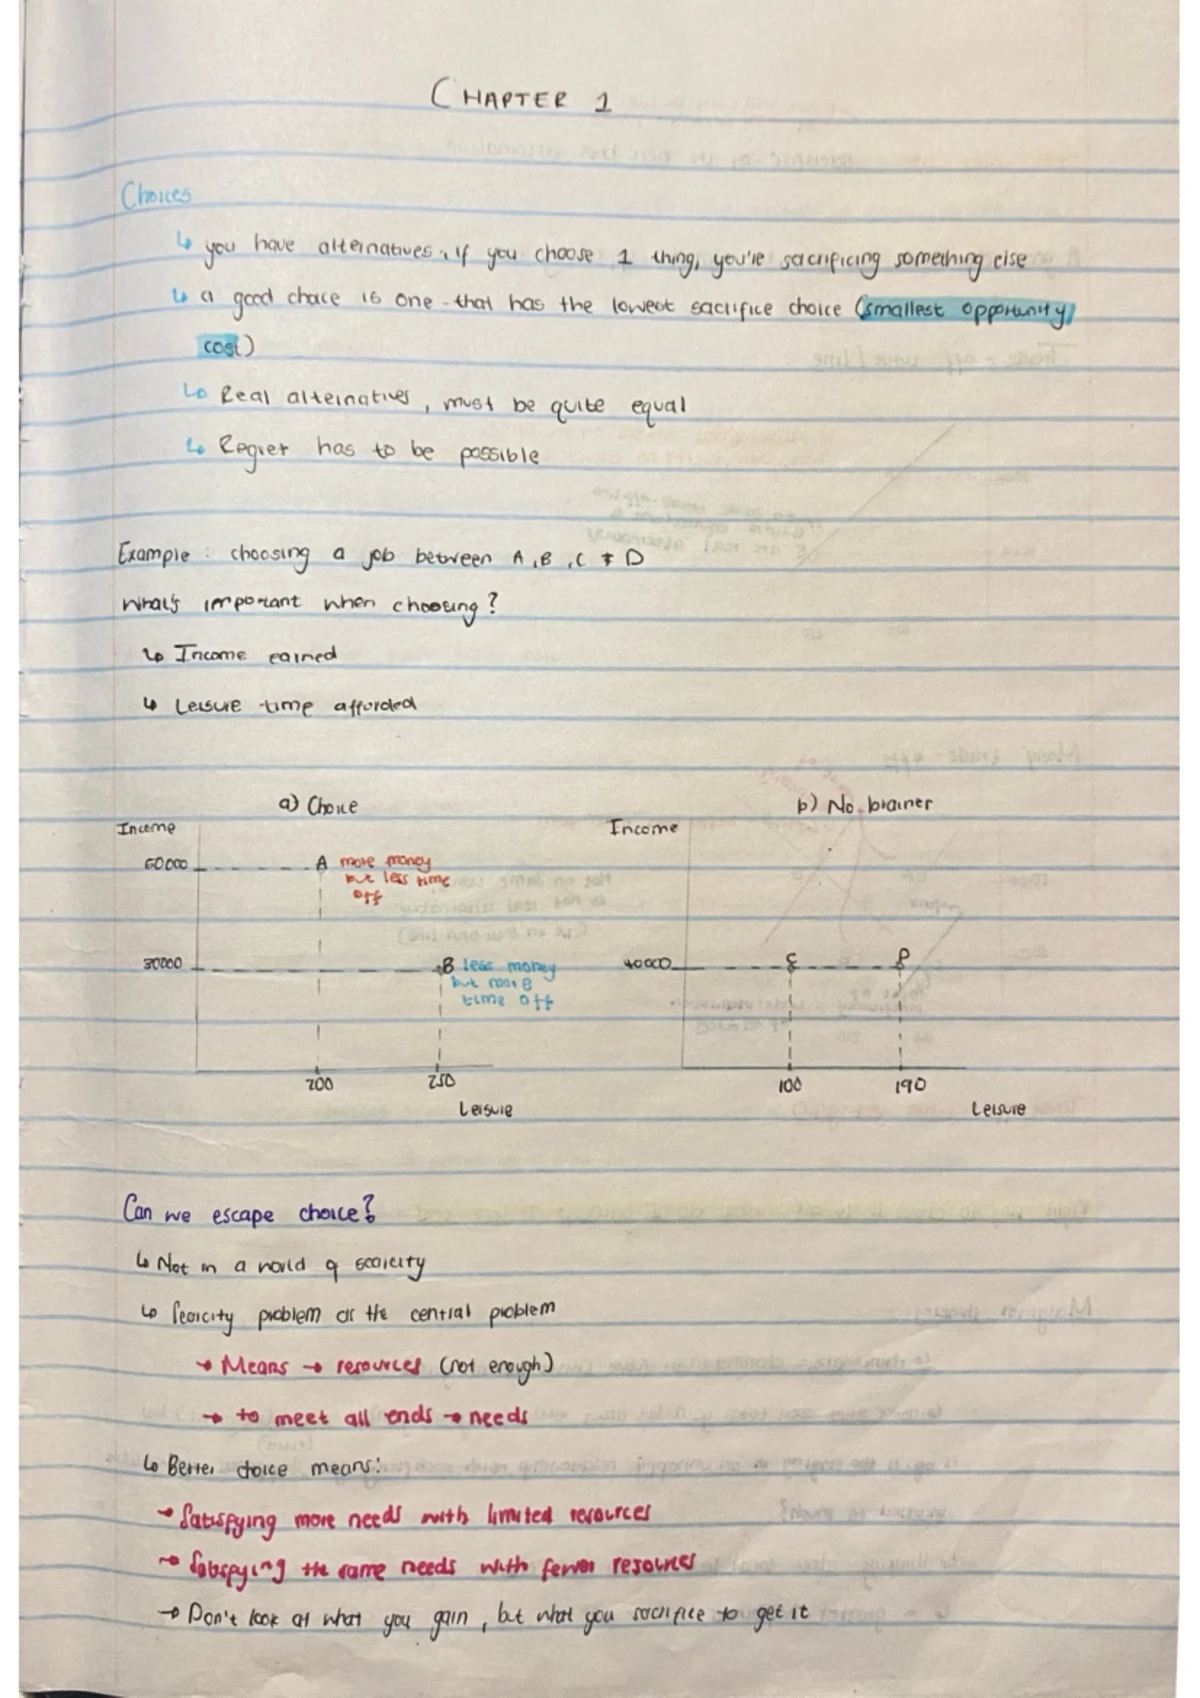 CHAPTER 1
Choices
↳ you have alternatives, if you choose 1 thing, you're sacrificing something else
↳ a good choice is one that has the lowest sacrifice choice (smallest opportunity
cost)
↳ Real alternatives, must be quite equal
↳ Regret has to be possible
Example: choosing a job between A, B, C & D
What's important when choosing?
↳ Income earned
↳ Leisure time afforded
a) Choice
Income
60000
A more money
but less time
off
30000
B less money
but more
time off
200 250
Leisure
b) No brainer
Income
40000
C D
100 190
Leisure
Can we escape choice?
↳ Not in a world of scarcity
↳ Scarcity problem as the central problem
→ Means → resources (not enough)
→ to meet all ends → needs
↳ Better choice means:
→ Satisfying more needs with limited resources
→ Satisfying the same needs with fewer resources
→ Don't look at what you gain, but what you sacrifice to get it